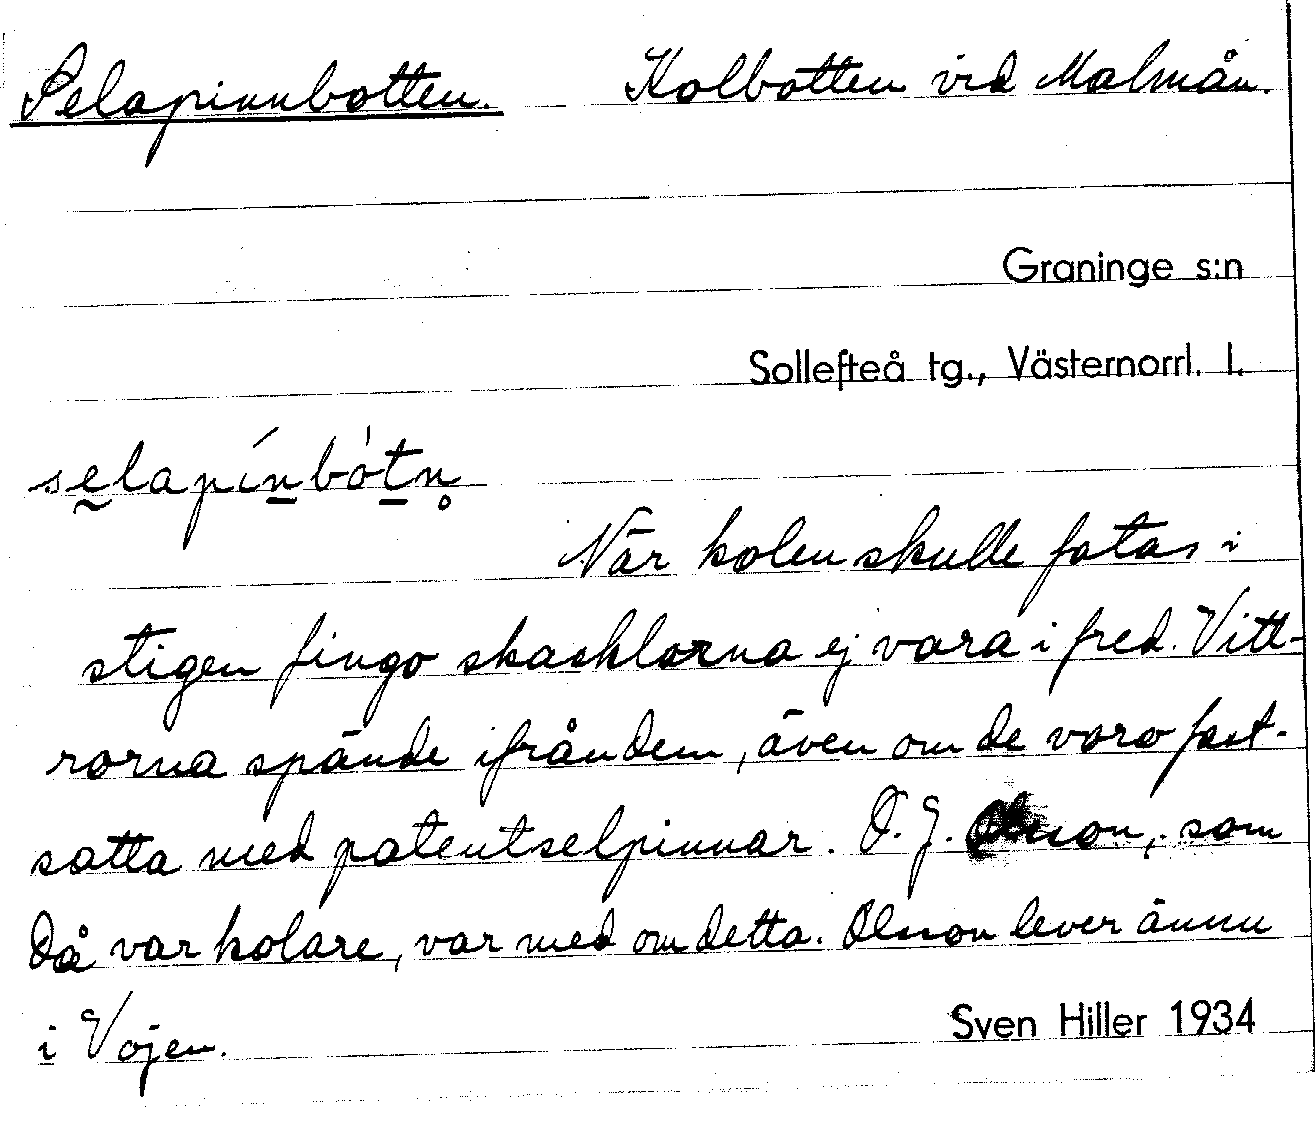 Selapinnbotten. Kolbotten vid Malmån.
Graninge s:n
Sollefteå tg., Västernorrl. l.
sḛlapín̲bót̲n̥
När kolen skulle fatas i
stigen fingo skacklorna ej vara i fred. Vitt-
rorna spände ifrån dem, även om de voro fast-
satta med patentselpinnar. O. J. Olsson, som
då var kolare, var med om detta. Olsson lever ännu
i Vojen.
Sven Hiller 1934